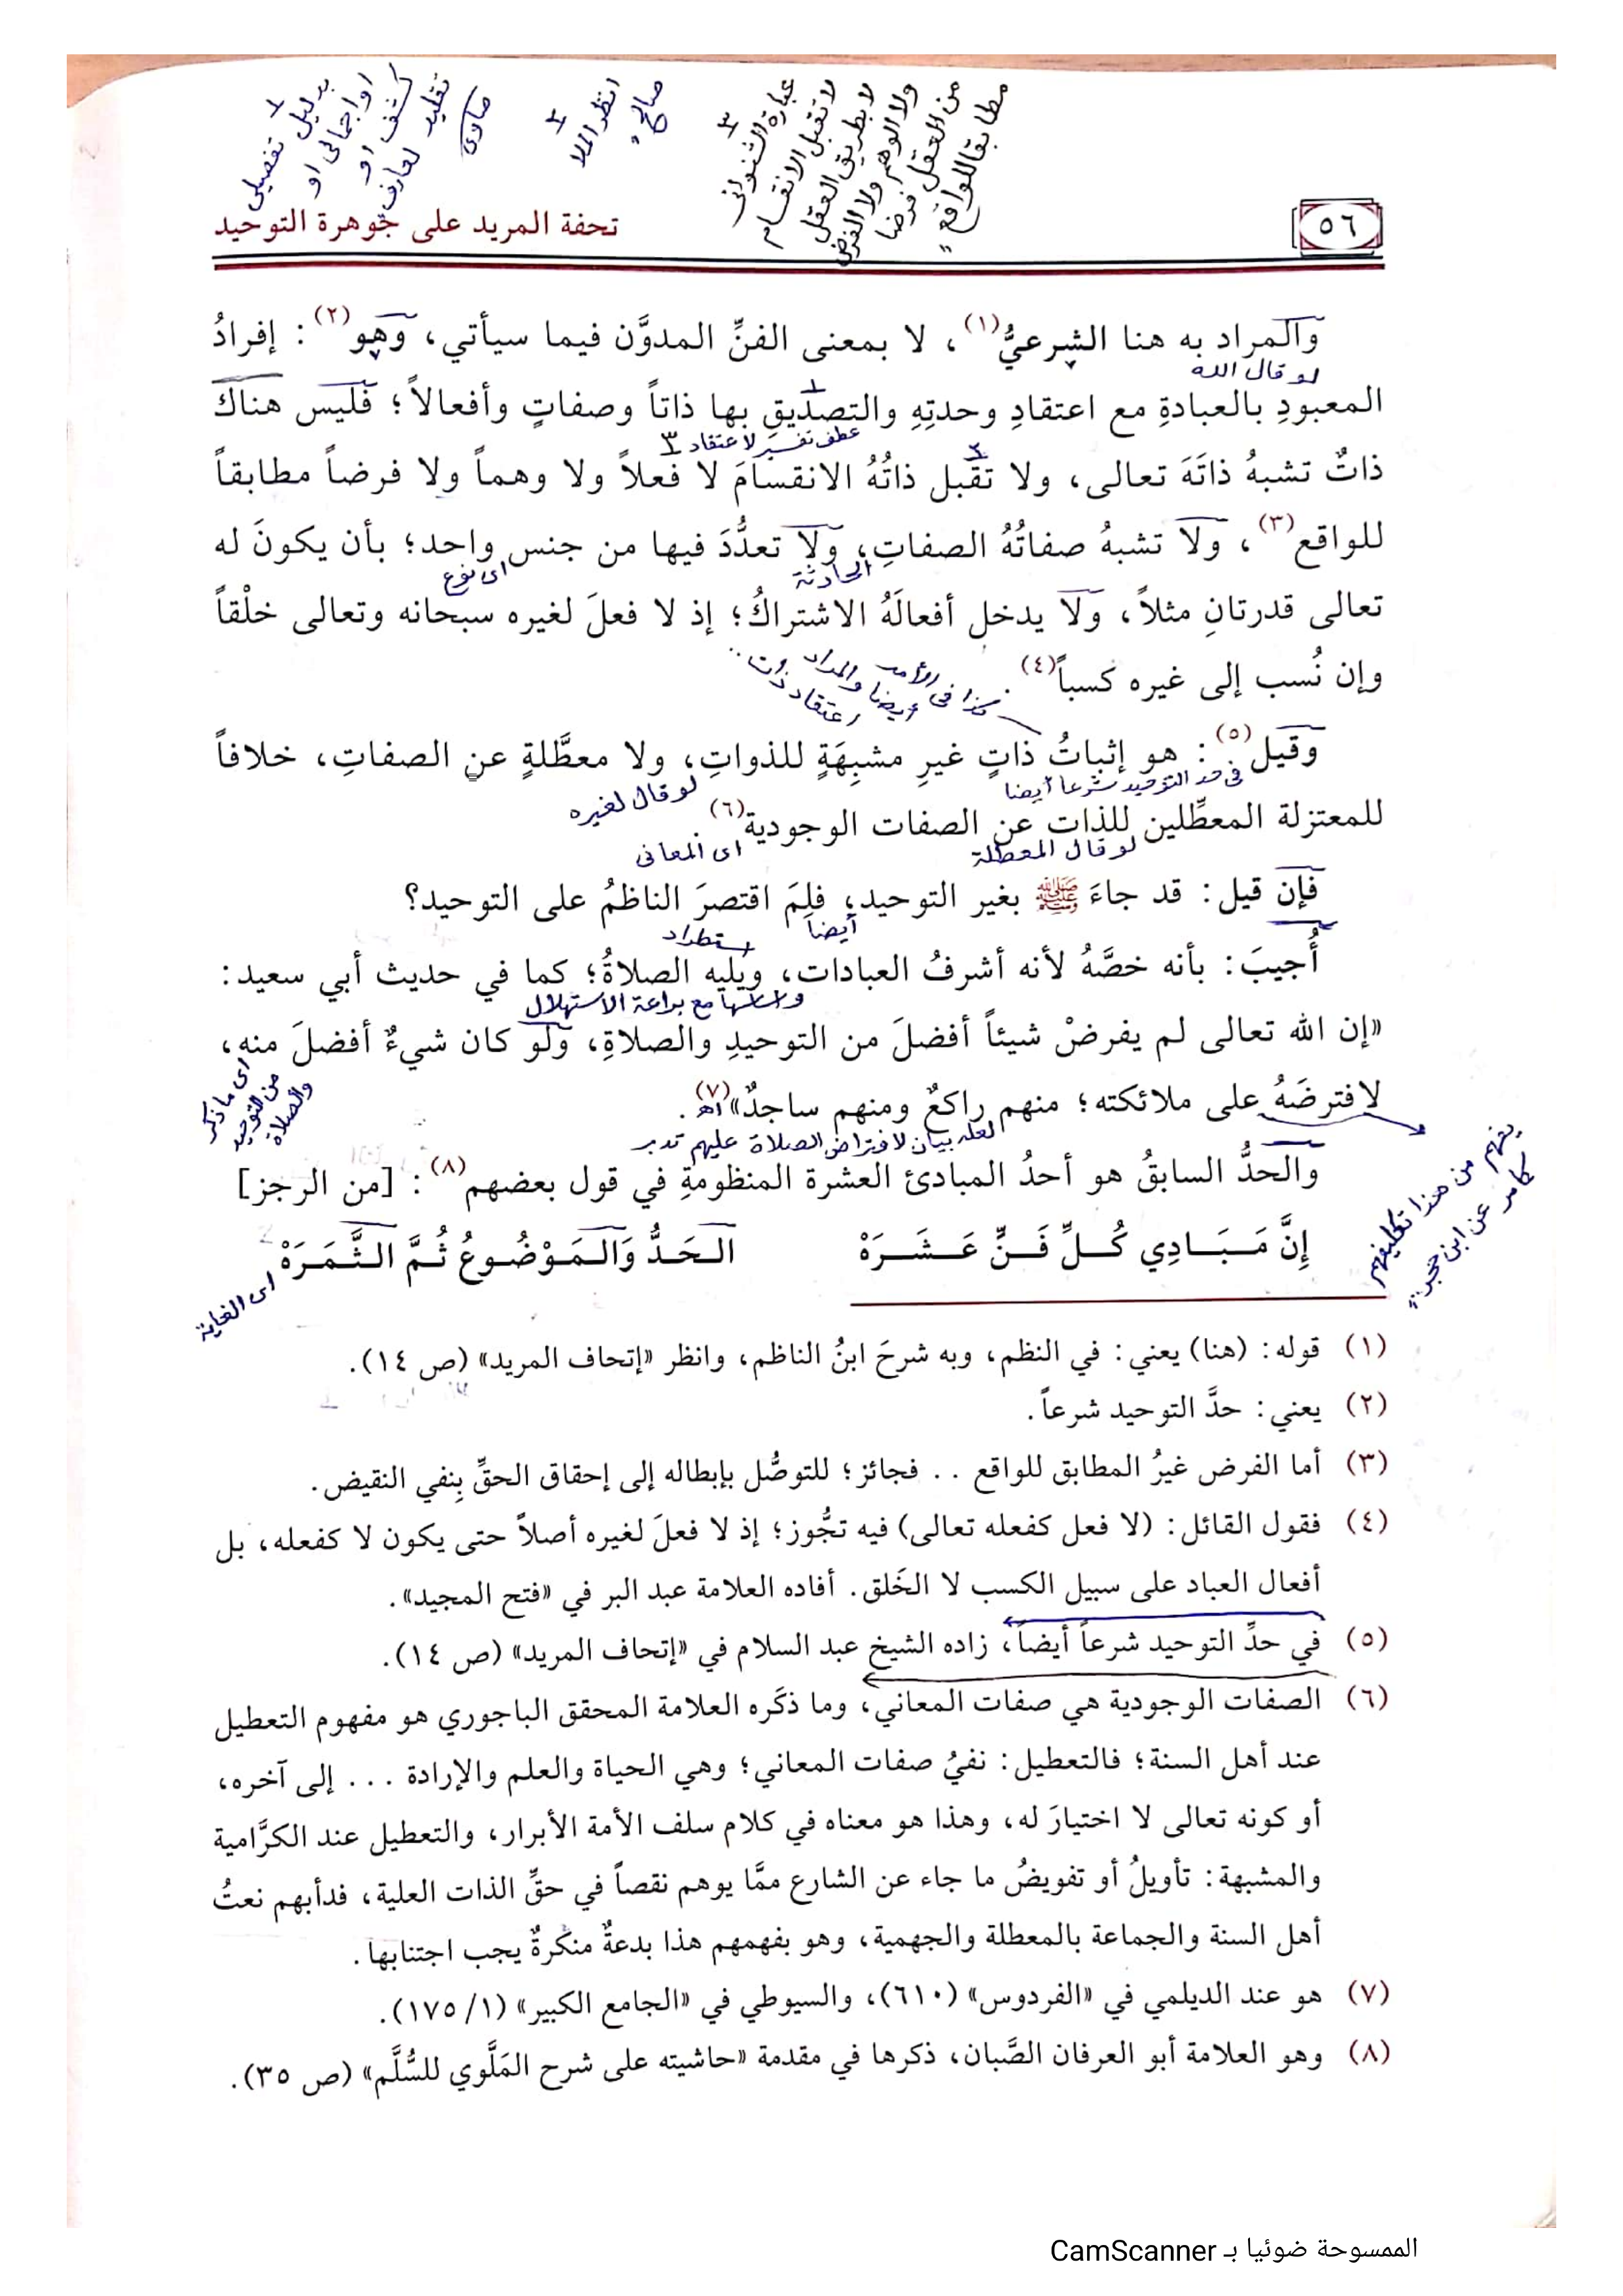 بدليل تفصيلى
او اجمالى او
كشف او
تقليد لعارف
صاوى
انظر الملا
صالح
عبارة الشنوانى
لا تقبل الانقسام
لا بطريق العقل
ولا الوهم ولا الفرض
من العقل فرضا
مطابقا للواقع
٥٦
تحفة المريد على جوهرة التوحيد
والمراد به هنا الشرعيُّ(١)، لا بمعنى الفنِّ المدوَّن فيما سيأتي، وهو(٢): إفرادُ
لو قال الله
المعبودِ بالعبادةِ مع اعتقادِ وحدتِهِ والتصديقِ بها ذاتاً وصفاتٍ وأفعالاً؛ فليس هناك
عطف تفسير لاعتقاد
ذاتٌ تشبهُ ذاتَهَ تعالى، ولا تقبل ذاتُهُ الانقسامَ لا فعلاً ولا وهماً ولا فرضاً مطابقاً
للواقع(٣)، ولا تشبهُ صفاتُهُ الصفاتِ، ولا تعدُّدَ فيها من جنس واحد؛ بأن يكونَ له
الحادثة
اى نوع
تعالى قدرتانِ مثلاً، ولا يدخل أفعالَهُ الاشتراكُ؛ إذ لا فعلَ لغيره سبحانه وتعالى خلْقاً
وإن نُسب إلى غيره كسباً(٤).
كذا فى الأمير
أيضا والمراد
اعتقاد ذات
وقيل(٥): هو إثباتُ ذاتٍ غيرِ مشبِهَةٍ للذواتِ، ولا معطَّلةٍ عن الصفاتِ، خلافاً
فى حد التوحيد شرعا أيضا
لو قال لغيره
للمعتزلة المعطِّلين للذات عن الصفات الوجودية(٦).
لو قال المعطلة
اى المعانى
فإن قيل: قد جاءَ ﷺ بغير التوحيد، فلِمَ اقتصرَ الناظمُ على التوحيد؟
أيضا
استطراد
أُجيبَ: بأنه خصَّهُ لأنه أشرفُ العبادات، ويليه الصلاةُ؛ كما في حديث أبي سعيد:
مع براعة الاستهلال
«إن الله تعالى لم يفرضْ شيئاً أفضلَ من التوحيدِ والصلاةِ، ولو كان شيءٌ أفضلَ منه،
اى ما ذكر
من التوحيد
والصلاة
لافترضَهُ على ملائكته؛ منهم راكعٌ ومنهم ساجدٌ»(٧) اهـ.
لعله بيان لافتراض الصلاة عليهم تدبر
يفهم من هذا تكليفهم
كما مر عن ابن حجر
والحدُّ السابقُ هو أحدُ المبادئ العشرة المنظومةِ في قول بعضهم(٨): [من الرجز]
إِنَّ مَبَادِي كُلِّ فَنٍّ عَشَرَهْ الحَدُّ وَالمَوْضُوعُ ثُمَّ الثَّمَرَهْ
اى الغاية
(١) قوله: (هنا) يعني: في النظم، وبه شرحَ ابنُ الناظم، وانظر «إتحاف المريد» (ص ١٤).
(٢) يعني: حدَّ التوحيد شرعاً.
(٣) أما الفرض غيرُ المطابق للواقع .. فجائز؛ للتوصُّل بإبطاله إلى إحقاق الحقِّ بِنفي النقيض.
(٤) فقول القائل: (لا فعل كفعله تعالى) فيه تجُّوز؛ إذ لا فعلَ لغيره أصلاً حتى يكون لا كفعله، بل
أفعال العباد على سبيل الكسب لا الخَلق. أفاده العلامة عبد البر في «فتح المجيد».
(٥) في حدِّ التوحيد شرعاً أيضاً، زاده الشيخ عبد السلام في «إتحاف المريد» (ص ١٤).
(٦) الصفات الوجودية هي صفات المعاني، وما ذكَره العلامة المحقق الباجوري هو مفهوم التعطيل
عند أهل السنة؛ فالتعطيل: نفيُ صفات المعاني؛ وهي الحياة والعلم والإرادة ... إلى آخره،
أو كونه تعالى لا اختيارَ له، وهذا هو معناه في كلام سلف الأمة الأبرار، والتعطيل عند الكرَّامية
والمشبهة: تأويلُ أو تفويضُ ما جاء عن الشارع ممَّا يوهم نقصاً في حقِّ الذات العلية، فدأبهم نعتُ
أهل السنة والجماعة بالمعطلة والجهمية، وهو بفهمهم هذا بدعةٌ منكرةٌ يجب اجتنابها.
(٧) هو عند الديلمي في «الفردوس» (٦١٠)، والسيوطي في «الجامع الكبير» (١/ ١٧٥).
(٨) وهو العلامة أبو العرفان الصَّبان، ذكرها في مقدمة «حاشيته على شرح المَلَّوي للسُّلَّم» (ص ٣٥).
الممسوحة ضوئيا بـ CamScanner